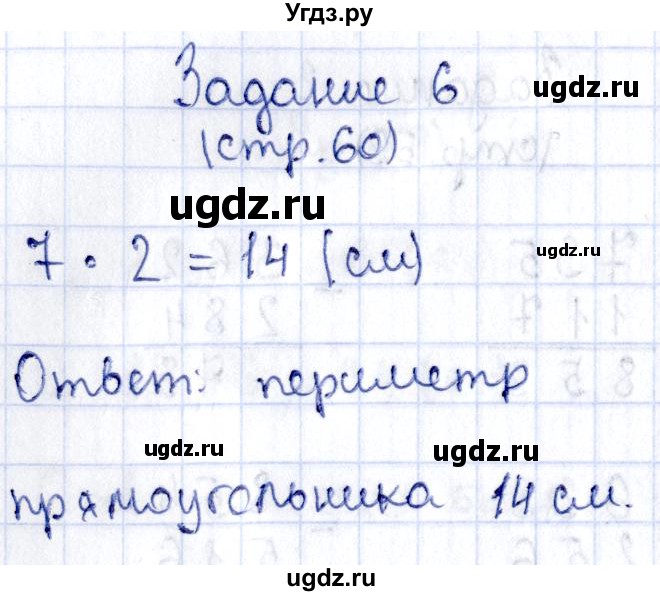 Угдз.ру
Задание 6
ugdz.ru
(стр. 60)
ugdz.ru
7 · 2 = 14 (см)
ugdz.ru
Ответ: периметр
ugdz.ru
ugdz.ru
прямоугольника 14 см.
ugdz.ru